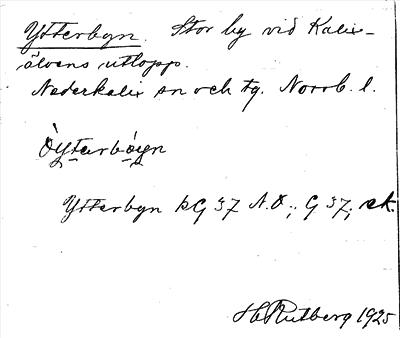 Ytterbyn. Stor by vid Kalix-
älvens utlopp.
Nederkalix sn och tg. Norrb. l.
Òytarbòyn
Ytterbyn kG 37 N.O.; G 37; sk.
H Rutberg 1925